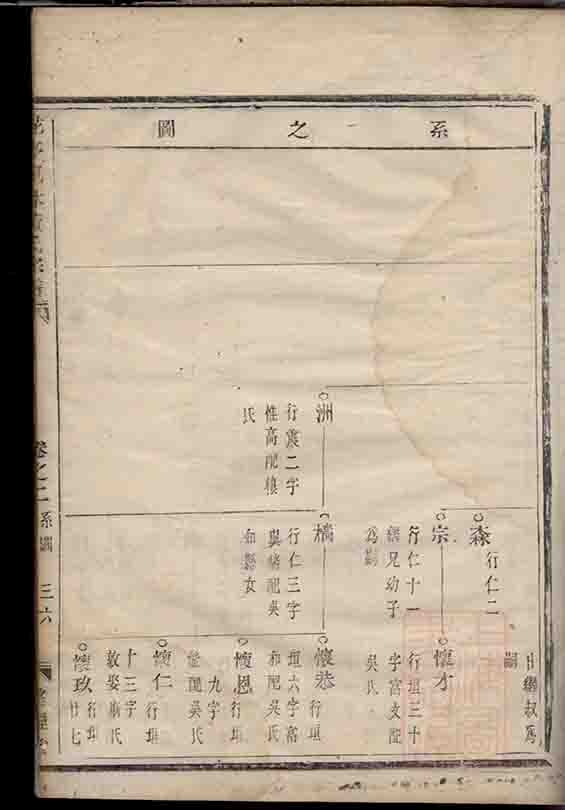 系之圖
出繼叔爲
嗣
森
行仁二
宗
行仁十一
繼兄幼子
爲嗣
懷才
行垣三十
字富文配
吳氏
洲
行震二字
惟高配樓
氏
橋
行仁三字
配吳
和縣女
懷恭
行垣
六字富
和配吳氏
懷恩
行垣
九字
配吳氏
懷仁
行垣
十三字
懷玖
行垣
廿七
卷之二
系圖
三六